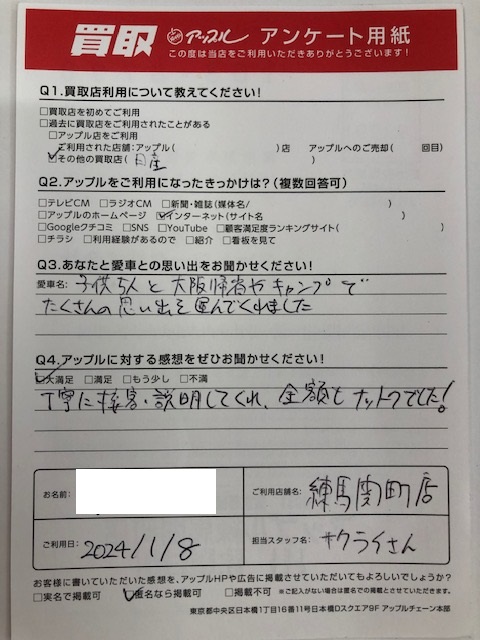 買取 アップル アンケート用紙
この度は当店をご利用いただきありがとうございます!
Q1.買取店利用について教えてください!
□買取店を初めてご利用
□過去に買取店をご利用されたことがある
□アップル店をご利用
ご利用された店舗:アップル( )店 アップルへのご売却( 回目)
☑その他の買取店( 日産 )
Q2.アップルをご利用になったきっかけは?(複数回答可)
□テレビCM □ラジオCM □新聞・雑誌(媒体名/ )
□アップルのホームページ ☑インターネット(サイト名 )
□Googleクチコミ □SNS □YouTube □顧客満足度ランキングサイト( )
□チラシ □利用経験があるので □紹介 □看板を見て
Q3.あなたと愛車との思い出をお聞かせください!
愛車名: 子供5人と大阪帰省やキャンプで
たくさんの思い出を運んでくれました
Q4.アップルに対する感想をぜひお聞かせください!
☑大満足 □満足 □もう少し □不満
丁寧に接客・説明してくれ、金額もナットクでした!
お名前:
ご利用店舗名: 練馬関町店
ご利用日: 2024/1/8
担当スタッフ名: サクライさん
お客様に書いていただいた感想を、アップルHPや広告に掲載させていただいてもよろしいでしょうか?
□実名で掲載可 ☑匿名なら掲載可 □掲載不可 ※ご記入がない場合は匿名での掲載とさせていただきます。
東京都中央区日本橋1丁目16番11号日本橋Dスクエア9F アップルチェーン本部